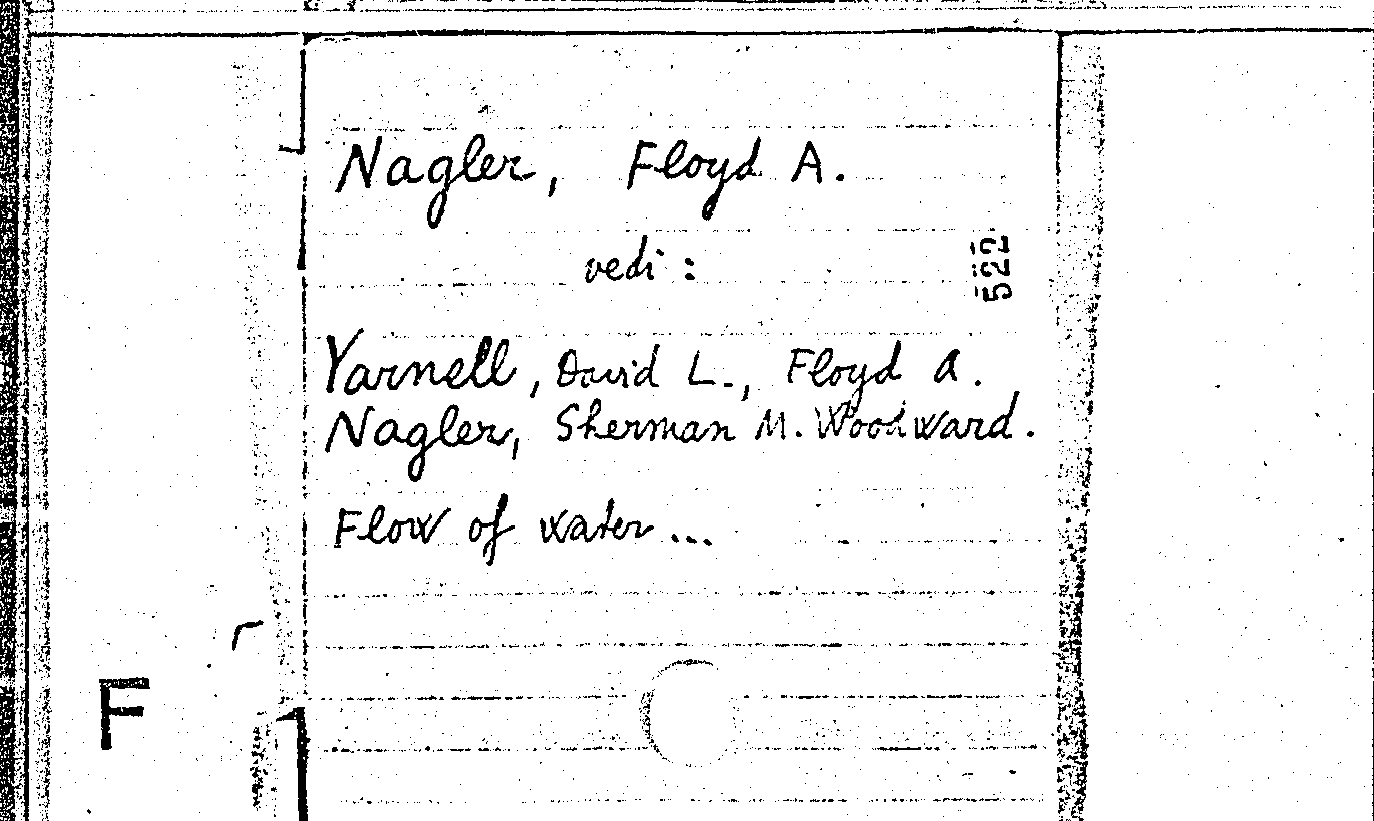 Nagler, Floyd A.
vedi :
522
Yarnell, David L., Floyd A.
Nagler, Sherman M. Woodward.
Flow of water...
F